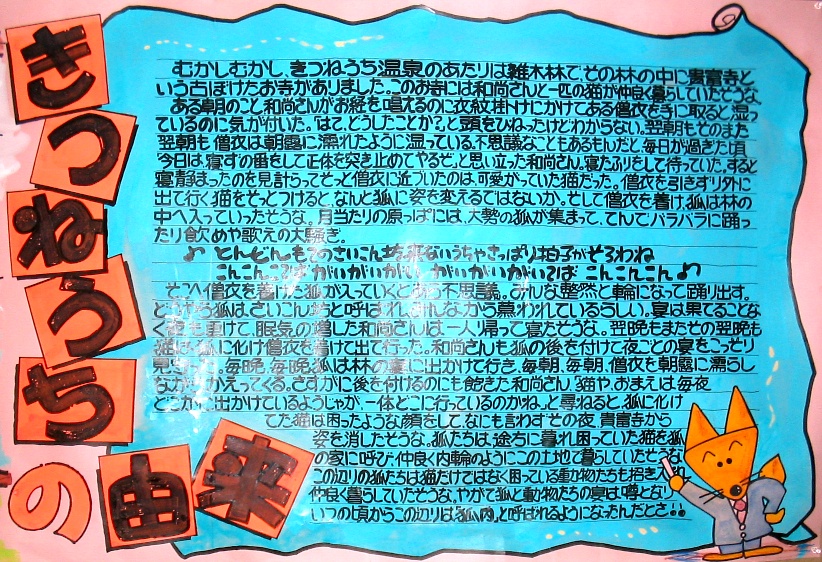 きつねうちの由来
むかしむかし、きつねうち温泉のあたりは雑木林で、その林の中に貴富寺と
いう古ぼけたお寺がありました。このお寺には和尚さんと一匹の猫が仲良く暮らしていたそうな
ある朝のこと、和尚さんがお経を唱えるのに衣紋掛けにかけてある僧衣を手に取ると、湿っ
ているのに気が付いた。「はて、どうしたことか?」と頭をひねったけどわからない。翌朝もそのまた
翌朝も僧衣は朝露に濡れたように湿っている。不思議なこともあるもんだと、毎日が過ぎた頃
「今日は、寝ずの番をして正体を突き止めてやるぞ」と思い立った和尚さん。寝たふりをして待っていた。すると
寝静まったのを見計らってそっと僧衣に近づいたのは、可愛がっていた猫だった。僧衣を引きずり外に
出て行く猫をそっとつけると、なんと狐に姿を変えるではないか。そして僧衣を着け、狐は林の
中へ入っていったそうな。月当たりの原っぱには、大勢の狐が集まって、てんでバラバラに踊っ
たり飲めや歌えの大騒ぎ。
♪とんどんもてのさいこん坊 来ないうちゃさっぱり拍子がそろわね
こんこんこらば がいがいがい がいがいがいてば こんこんこん♪
そこへ僧衣を着けた狐が入っていくとあら不思議。みんな整然と輪になって踊り出す。
どうやら狐は、さいこん坊と呼ばれ、みんなから慕われているらしい。宴は果てることな
く夜も更けて、眠気の増した和尚さんは一人帰って寝たそうな。翌晩もまたその翌晩も
猫は狐に化け僧衣を着けて出て行った。和尚さんも狐の後を付けて夜ごとの宴をこっそり
見守った。毎晩、毎晩狐は林の宴に出かけて行き、毎朝、毎朝、僧衣を朝露に濡らし
ながらかえってくる。さすがに後を付けるのにも飽きた和尚さん。「猫や、おまえは毎夜
どこかに出かけているようじゃが、一体どこに行っているのかね」と尋ねると、狐に化け
てた猫は困ったような顔をして、なにも言わずその夜、貴富寺から
姿を消したそうな。狐たちは、途方に暮れ困っていた猫を狐
の家に呼び、仲良く内輪のようにこの土地で暮らしていたそうな
この辺りの狐たちは猫だけではなく困っている動物たちも招き入れ
仲良く暮らしていたそうな。やがて狐と動物たちの宴は噂となり
いつの頃からかこの辺りは「狐内」と呼ばれるようになったんだとさ!!